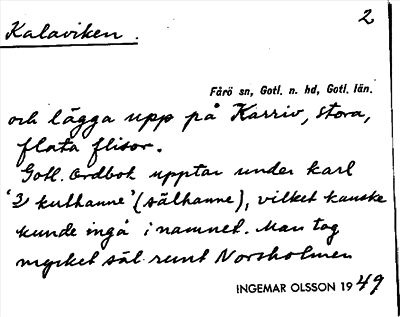 Kalaviken.
2
Fårö sn, Gotl. n. hd, Gotl. län.
och lägga upp på Karriv, stora,
flata flisor.
Gotl. Ordbok upptar under karl
'3 kuthanne' (sälhanne), vilket kanske
kunde ingå i namnet. Man tog
mycket säl runt Norsholmen
INGEMAR OLSSON 1949